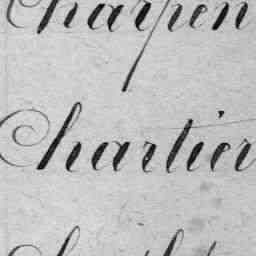 Charpen
Chartier